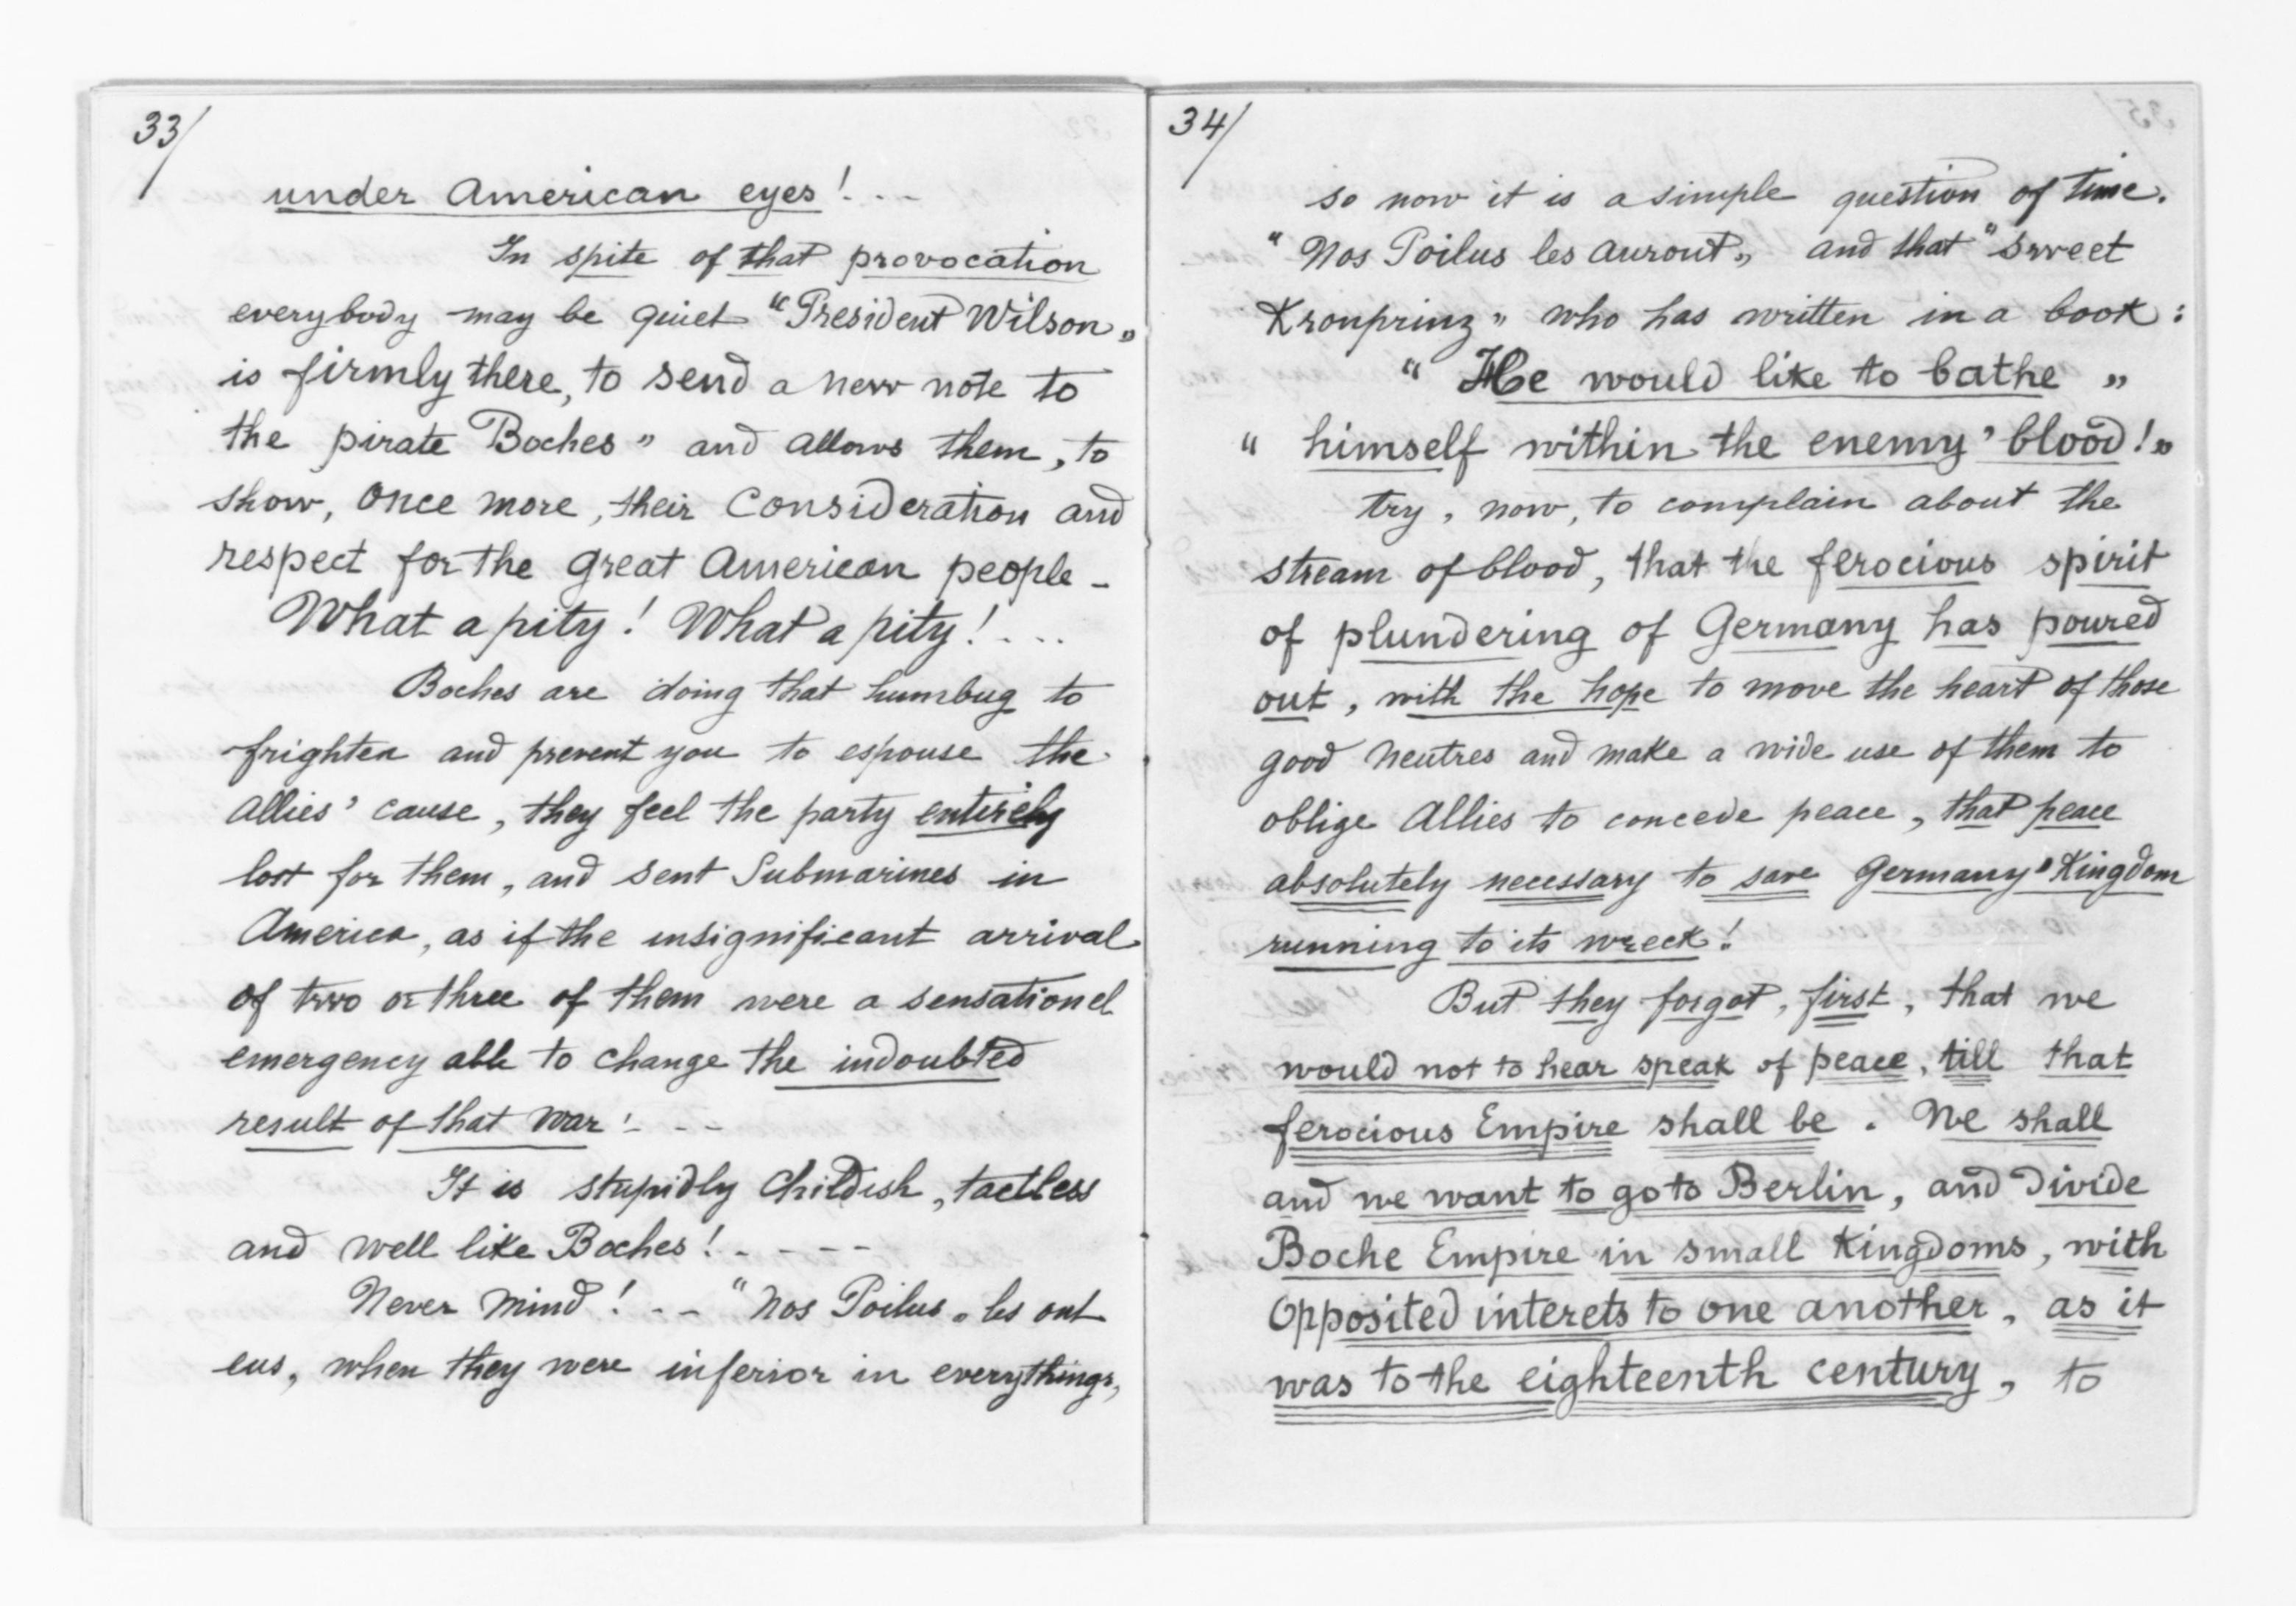 33/
under American eyes! . --
In spite of that provocation
everybody may be quiet "President Wilson"
is firmly there, to send a new note to
the pirate Boches" and allows them, to
show, once more, their consideration and
respect for the great American people -
What a pity! What a pity! . ...
Boches are doing that humbug to
frighten and prevent you to espouse the
Allies' cause, they feel the party entirely
lost for them, and sent Submarines in
America, as if the insignificant arrival
of two or three of them were a sensationel
emergency able to change the indoubted
result of that war! - - -
It is stupidly childish, tactless
and well like Boches! - - - -
Never mind! -- "Nos Poilus" les ont
eus, when they were inferior in everythings,
34/
so now it is a simple question of time.
"Nos Poilus les auront" and that "sweet
Kronprinz" who has written in a book:
"He would like to bathe"
"himself within the enemy' blood!"
try, now, to complain about the
stream of blood, that the ferocious spirit
of plundering of Germany has poured
out, with the hope to move the heart of those
good neutres and make a wide use of them to
oblige Allies to concede peace, that peace
absolutely necessary to save Germany' Kingdom
running to its wreck!
But they forgot, first, that we
would not to hear speak of peace, till that
ferocious Empire shall be. We shall
and we want to go to Berlin, and divide
Boche Empire in small Kingdoms, with
opposited interets to one another, as it
was to the eighteenth century, to